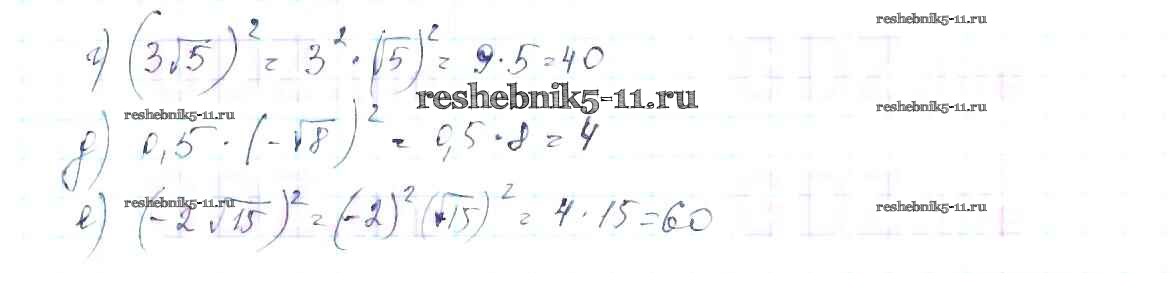 reshebnik5-11.ru
г) (3√5)² = 3² · (√5)² = 9·5=40
reshebnik5-11.ru
reshebnik5-11.ru
reshebnik5-11.ru
д) 0,5 · (-√8)² = 0,5 · 8 = 4
reshebnik5-11.ru
reshebnik5-11.ru
е) (-2√15)² = (-2)² (√15)² = 4 · 15 = 60